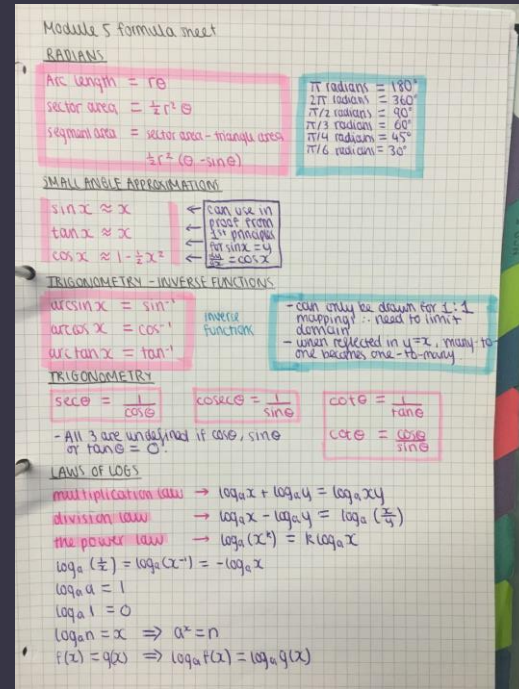 Module 5 formula sheet
RADIANS
Arc length = rθ
sector area = ½r²θ
segment area = sector area - triangle area
½r²(θ - sinθ)
π radians = 180°
2π radians = 360°
π/2 radians = 90°
π/3 radians = 60°
π/4 radians = 45°
π/6 radians = 30°
SMALL ANGLE APPROXIMATIONS
sin x ≈ x
tan x ≈ x
cos x ≈ 1 - ½x²
← can use in
← proof from
← 1st principles
← for sinx = y
dy/dx = cosx
TRIGONOMETRY - INVERSE FUNCTIONS
arcsin x = sin⁻¹
arcos x = cos⁻¹
arctan x = tan⁻¹
inverse
functions
- can only be drawn for 1:1
mappings ∴ need to limit
domain
- when reflected in y=x, many-to-
one becomes one-to-many
TRIGONOMETRY
secθ = 1/cosθ
cosecθ = 1/sinθ
cotθ = 1/tanθ
cotθ = cosθ/sinθ
- All 3 are undefined if cosθ, sinθ
or tanθ = 0.
LAWS OF LOGS
multiplication law → logₐx + logₐy = logₐxy
division law → logₐx - logₐy = logₐ(x/y)
the power law → logₐ(xᵏ) = klogₐx
logₐ(1/x) = logₐ(x⁻¹) = -logₐx
logₐa = 1
logₐ1 = 0
logₐn = x ⇒ aˣ = n
f(x) = g(x) ⇒ logₐf(x) = logₐg(x)